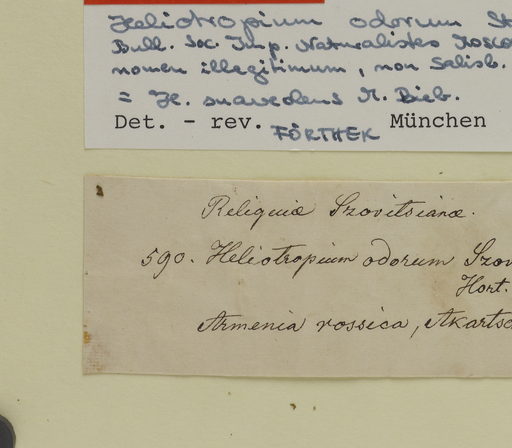 Heliotropium odorum
Bull. Soc. Imp. Naturalistes Mosco
nomen illegitimum, non Salisb.
= H. suaveolens M. Bieb.
Det. - rev. FÖRTHER München
Reliquiæ Szovitsianæ.
590. Heliotropium odorum Szov
Hort.
Armenia rossica,